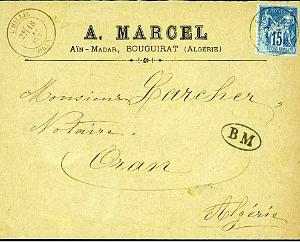 A. MARCEL
AÏN-MADAR, BOUGUIRAT (ALGÉRIE)
15
Monsieur Larcher,
Notaire,
Oran
BM
Algérie